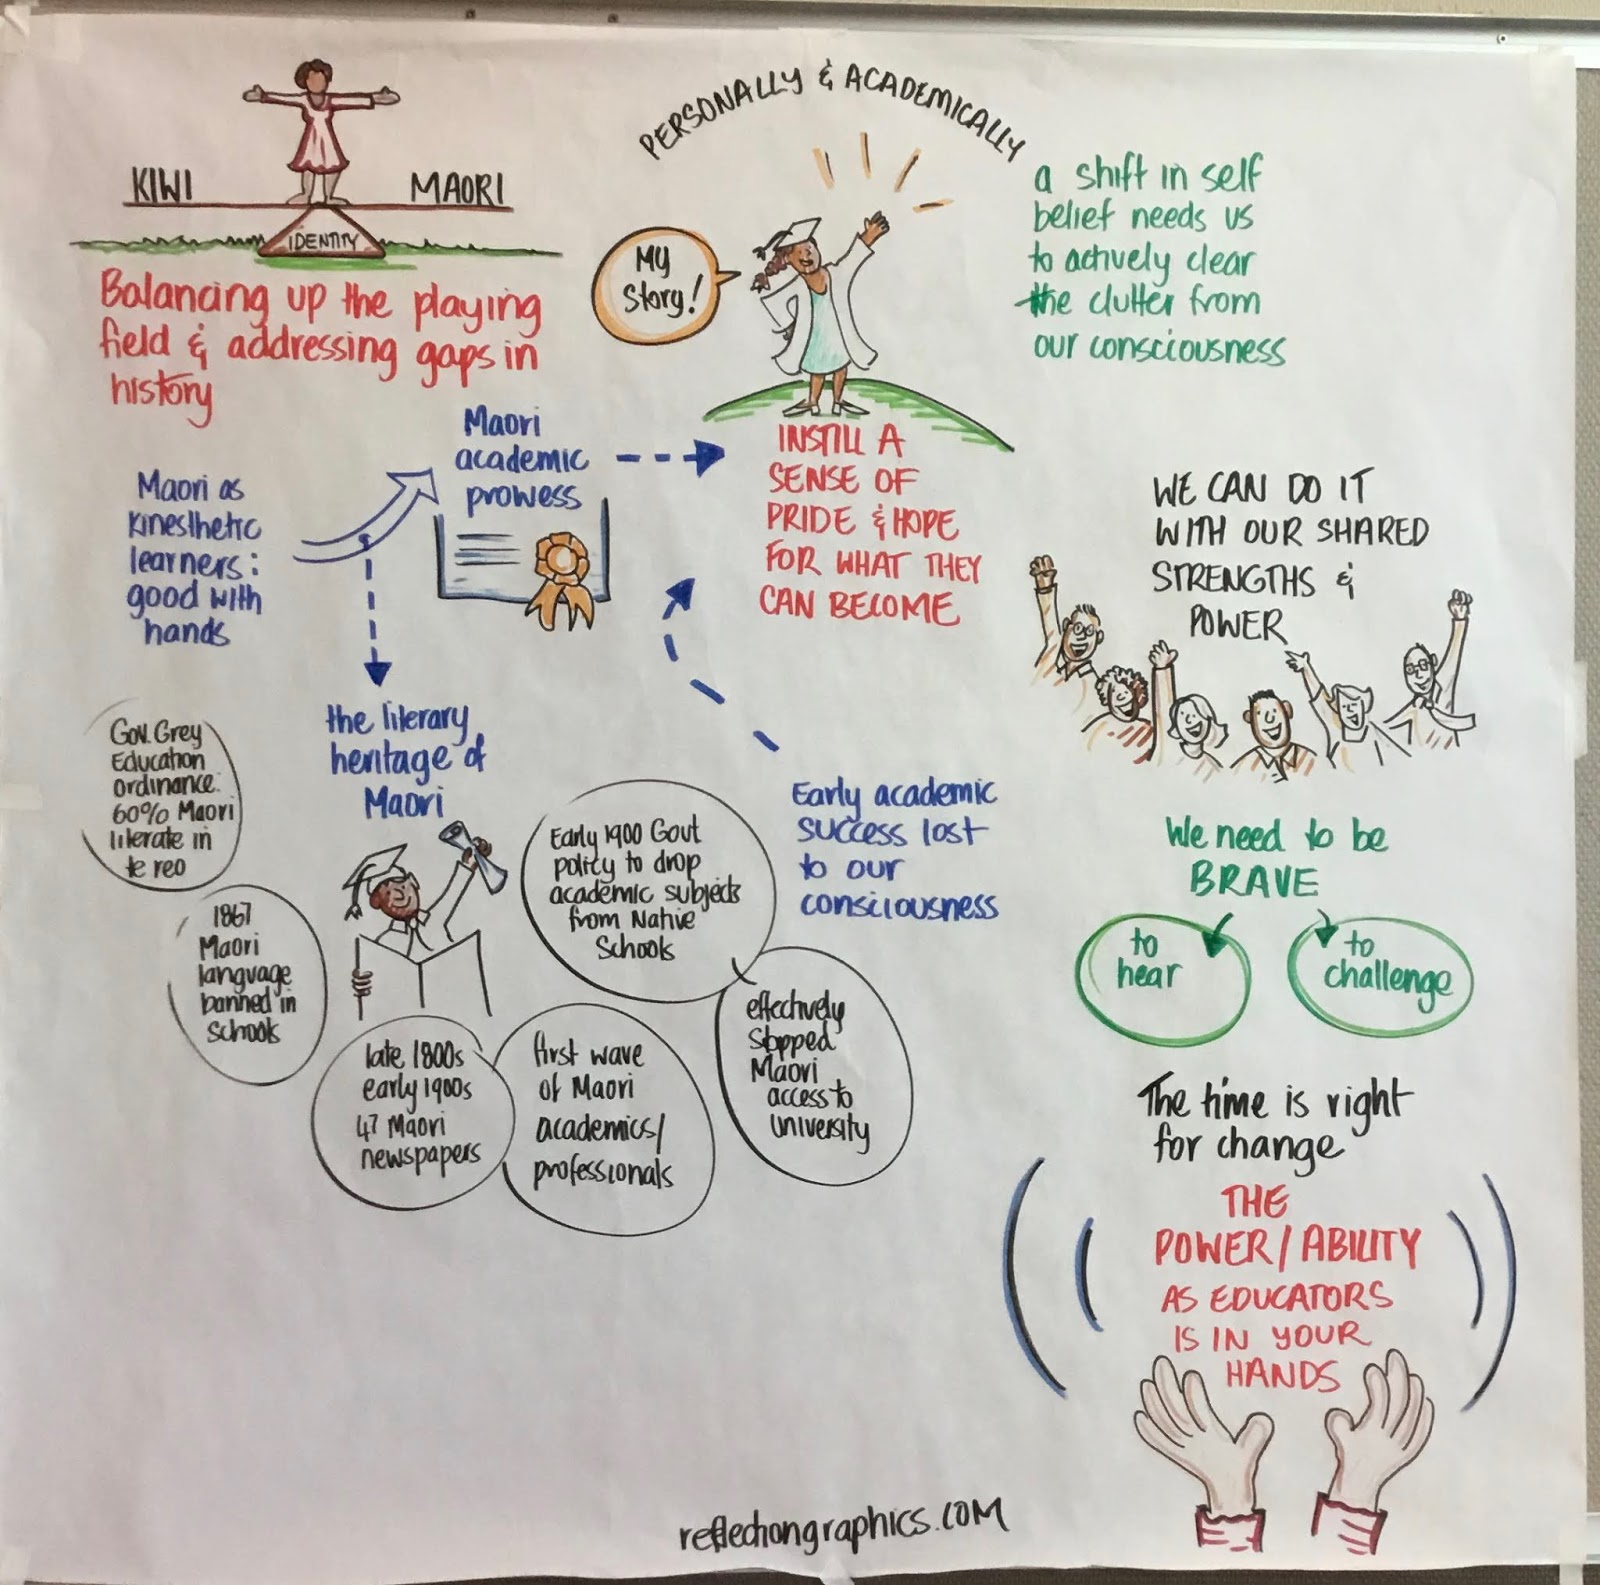 KIWI
MAORI
IDENTITY
Balancing up the playing
field & addressing gaps in
history
PERSONALLY & ACADEMICALLY
My
Story!
a shift in self
belief needs us
to actively clear
the clutter from
our consciousness
Maori as
kinesthetic
learners:
good with
hands
Maori
academic
prowess
INSTILL A
SENSE OF
PRIDE & HOPE
FOR WHAT THEY
CAN BECOME
WE CAN DO IT
WITH OUR SHARED
STRENGTHS &
POWER
Gov. Grey
Education
Ordinance:
60% Maori
literate in
te reo
the literary
heritage of
Maori
1867
Maori
language
banned in
schools
late 1800s
early 1900s
47 Maori
newspapers
first wave
of Maori
academics/
professionals
Early 1900 Govt
policy to drop
academic subjects
from Native
Schools
effectively
stopped
Maori
access to
university
Early academic
success lost
to our
consciousness
We need to be
BRAVE
to
hear
to
challenge
The time is right
for change
THE
POWER/ABILITY
AS EDUCATORS
IS IN YOUR
HANDS
reflectiongraphics.com